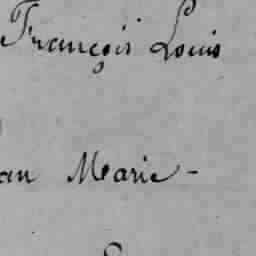 François Louis
an Marie -